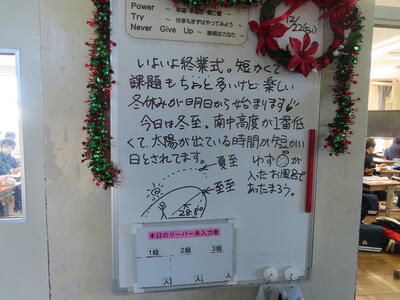 Power ～
Try ～ 何事もまずはやってみよう ～
Never Give Up ～ 継続は力なり ～
12/22(金)
いよいよ終業式。短かくて
課題もちょっと多いけど、楽しい
冬休みが明日から始まります!!
今日は冬至。南中高度が1番低
くて、太陽が出ている時間が短かい
日とされてます。
夏至
ゆず が
入ったお風呂で
あたまろう。
至至
28.8°
本日のリーバー未入力者
1組 2組 3組
人 人 人